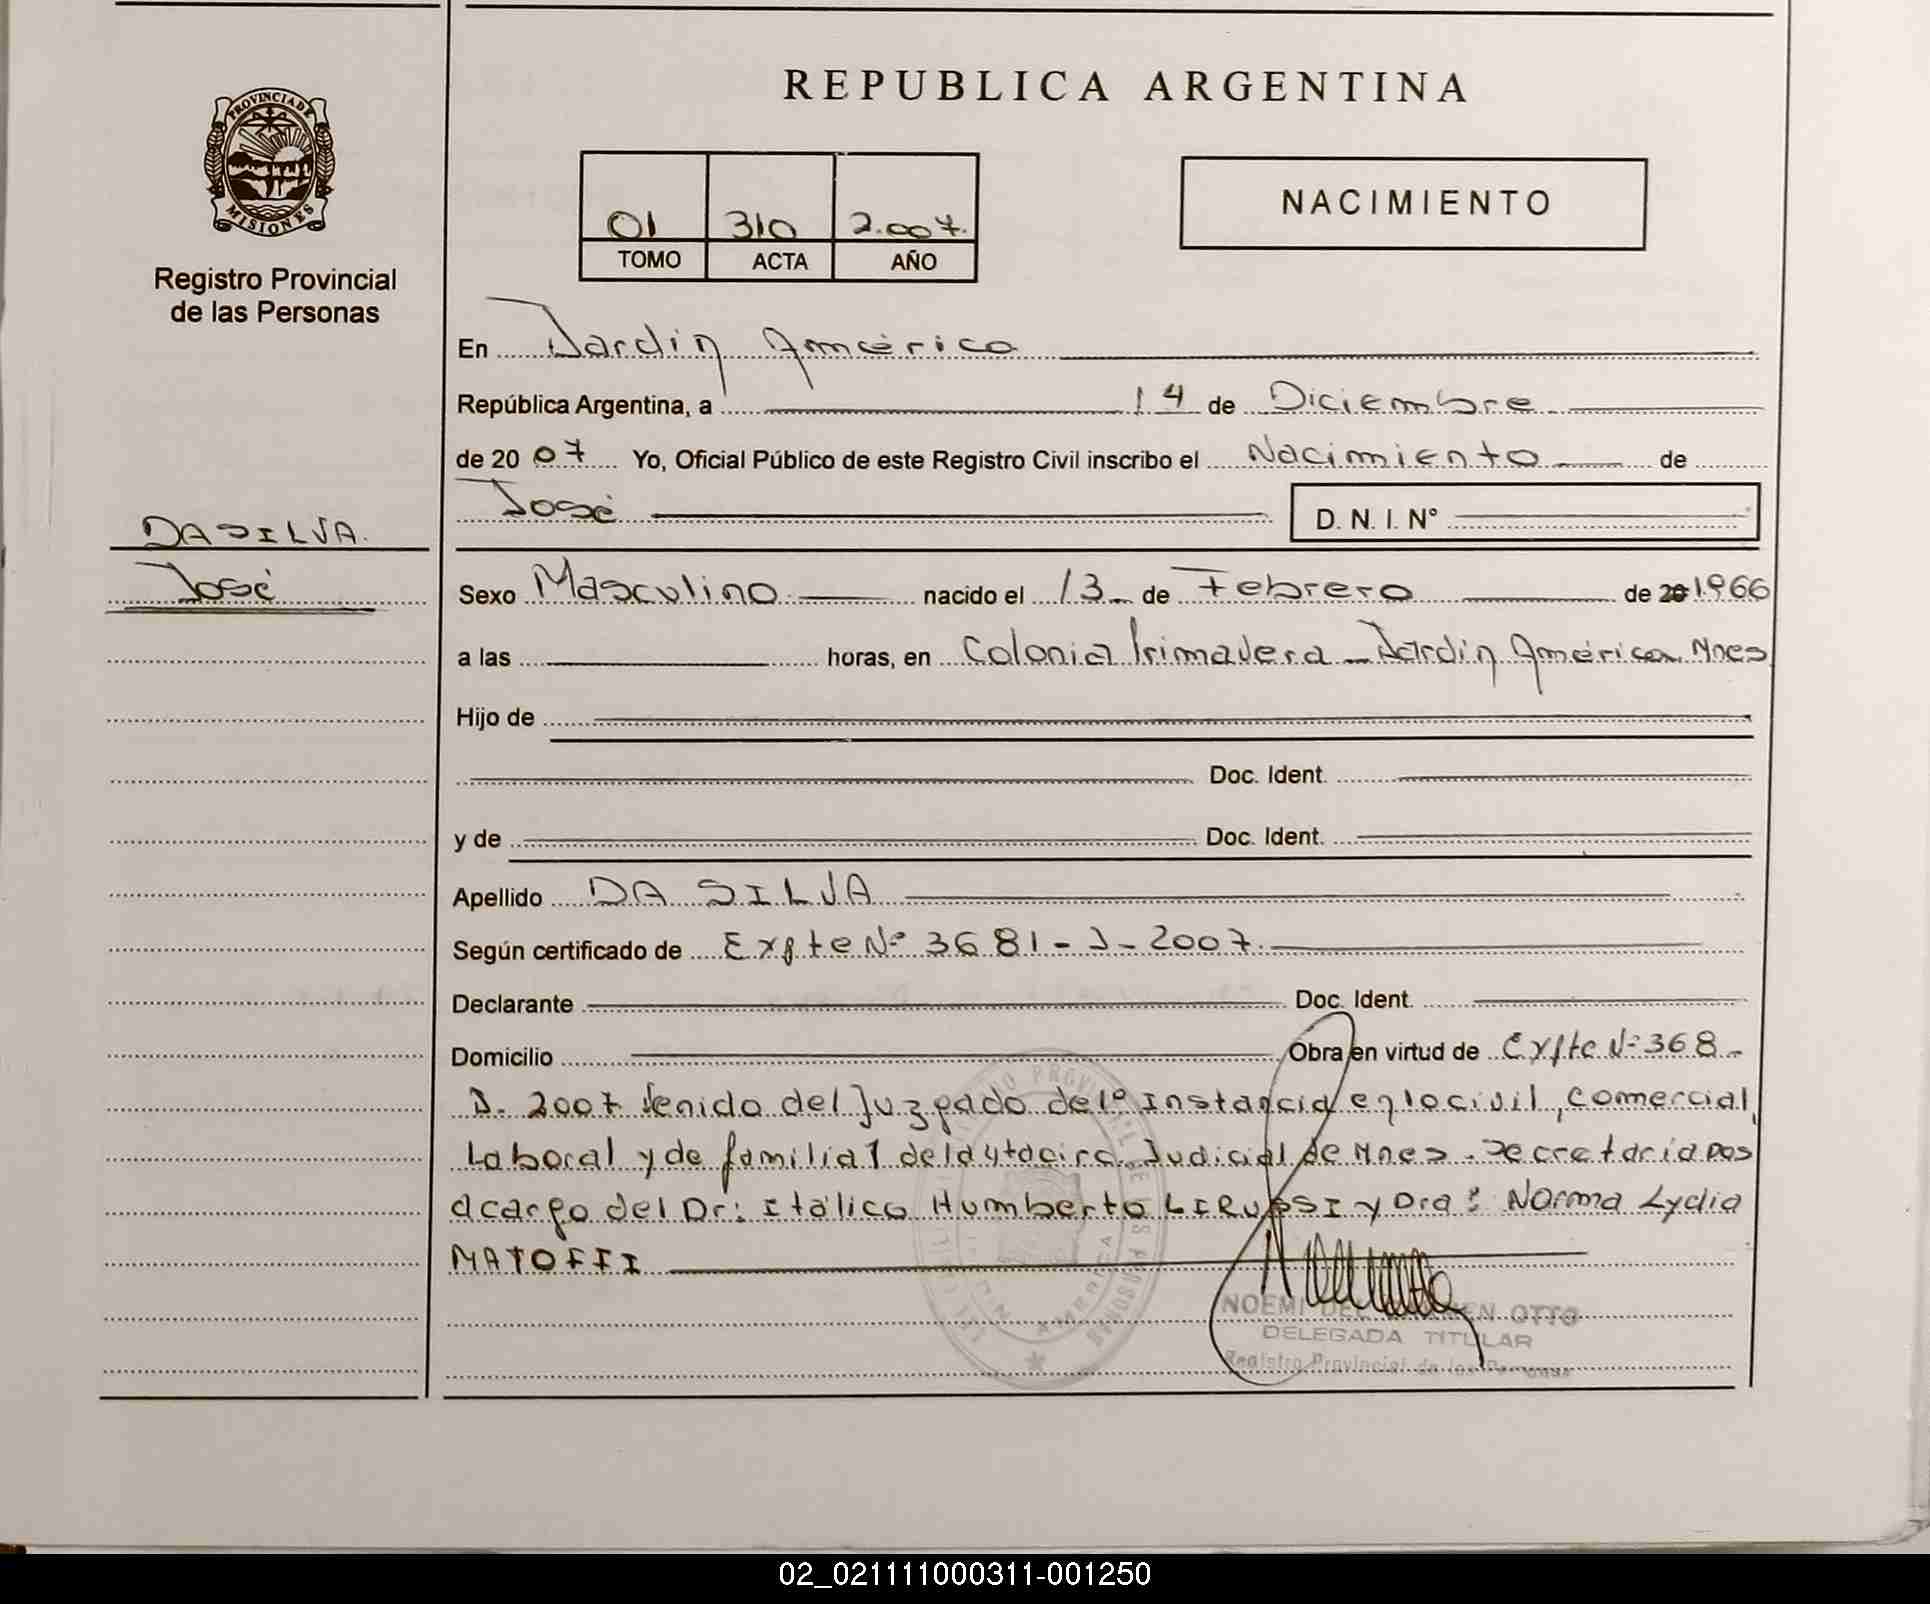 REPUBLICA ARGENTINA
PROVINCIA DE MISIONES
Registro Provincial
de las Personas
01 310 2.007.
TOMO ACTA AÑO
NACIMIENTO
En Jardín América
República Argentina, a 14 de Diciembre
de 20 07 Yo, Oficial Público de este Registro Civil inscribo el Nacimiento de
José D. N. I. N°
DA SILVA.
José
Sexo Masculino nacido el 13 de Febrero de 20 1966
a las horas, en Colonia Primavera - Jardín América Mnes
Hijo de
Doc. Ident.
y de Doc. Ident.
Apellido DA SILVA
Según certificado de Expte Nº 3681-J-2007.
Declarante Doc. Ident.
Domicilio Obra en virtud de Expte Nº 368-
J. 2007 Venido del Juzgado de 1º Instancia en lo civil, comercial,
Laboral y de familia 1 de la Judicial de Mnes. Secretaria Dos
a cargo del Dr: Itálico Humberto y Dra: Norma Lydia
MATOFFI
NOEMI DEL CARMEN OTTO
DELEGADA TITULAR
Registro Provincial de las Personas
02_021111000311-001250